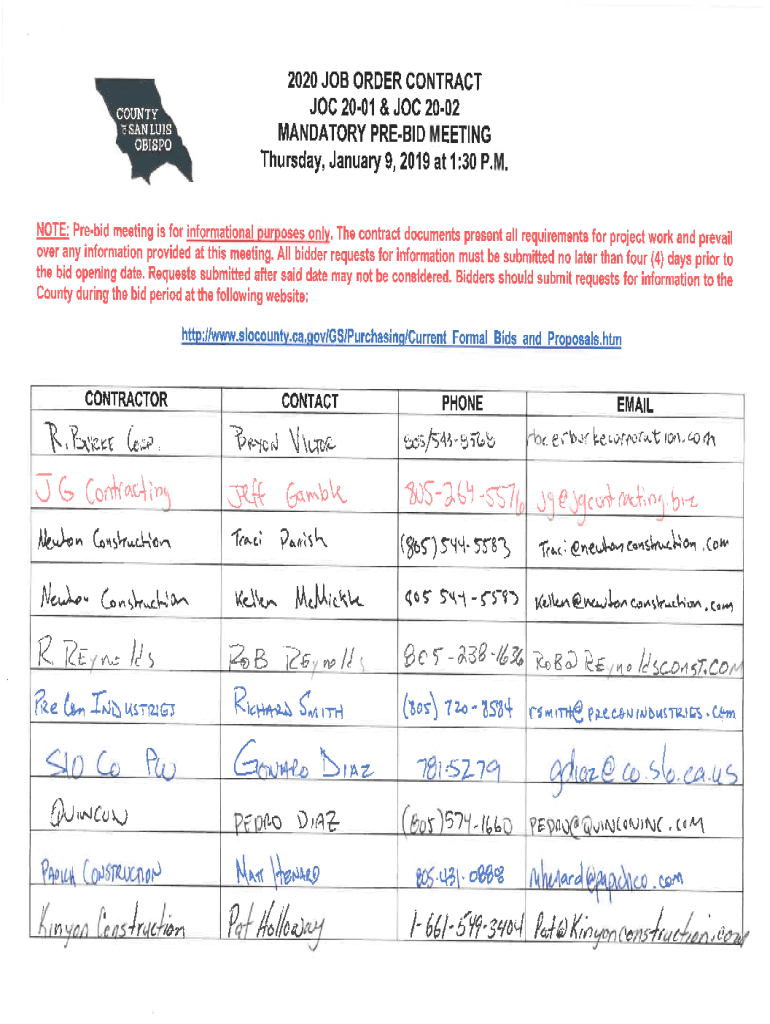 COUNTY
OF SAN LUIS
OBISPO
2020 JOB ORDER CONTRACT
JOC 20-01 & JOC 20-02
MANDATORY PRE-BID MEETING
Thursday, January 9, 2019 at 1:30 P.M.
NOTE: Pre-bid meeting is for informational purposes only. The contract documents present all requirements for project work and prevail
over any information provided at this meeting. All bidder requests for information must be submitted no later than four (4) days prior to
the bid opening date. Requests submitted after said date may not be considered. Bidders should submit requests for information to the
County during the bid period at the following website:
http://www.slocounty.ca.gov/GS/Purchasing/Current_Formal_Bids_and_Proposals.htm
CONTRACTOR CONTACT PHONE EMAIL
R. BURKE CORP. BRYON VICTOR 805/543-8568
JG Contracting Jeff Gamble 805-264-5576 jg@jgcontracting.biz
Newton Construction Traci Parish (805) 544-5583 Traci@newtonconstruction.com
Newton Construction Kellen McMickle 805 544-5583 Kellen@newtonconstruction.com
R REynolds ROB REynolds 805-238-1636 ROB@REynoldsCONST.COM
PRE CON INDUSTRIES RICHARD SMITH (805) 720-8584 rsmith@PRECONINDUSTRIES.COM
SLO Co PW GONZALO DIAZ 781-5279 gdiaz@co.slo.ca.us
QUINCON PEDRO DIAZ (805)574-1660 PEDRO@QUINCONINC.COM
PAPICH CONSTRUCTION MATT HENARD 805-431-0888 mhenard@papichco.com
Kinyon Construction Pat Holloway 1-661-549-3404 Pat@Kinyonconstruction.com